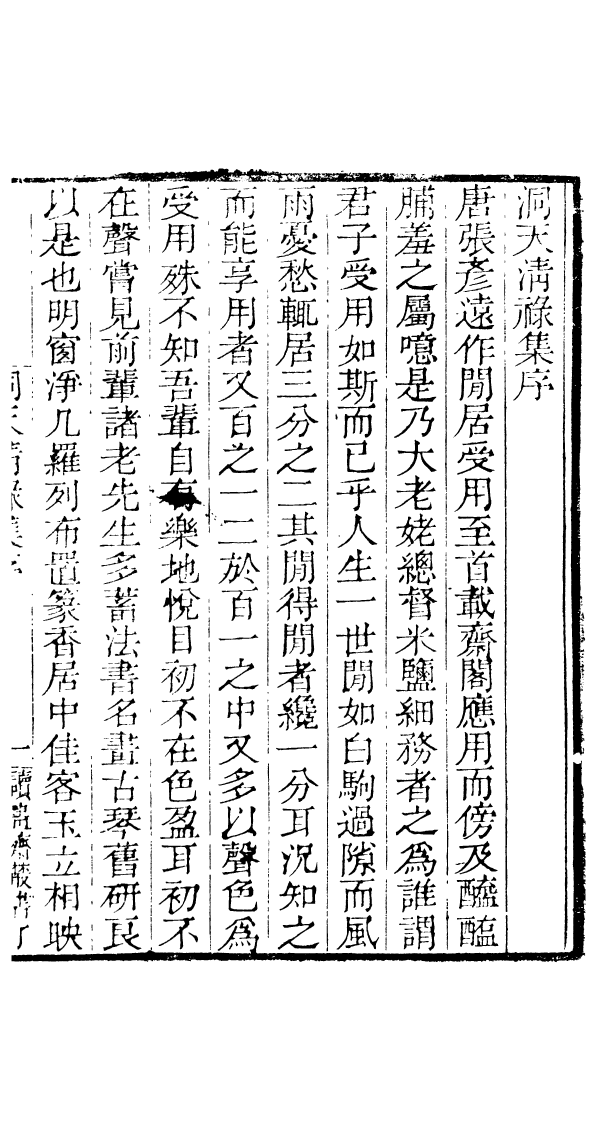 洞天清祿集序
唐張彥遠作閒居受用至首載齋閣應用而傍及醯醢
脯羞之屬噫是乃大老姥總督米鹽細務者之爲誰謂
君子受用如斯而已乎人生一世閒如白駒過隙而風
雨憂愁輒居三分之二其閒得閒者纔一分耳況知之
而能享用者又百之一二於百一之中又多以聲色爲
受用殊不知吾輩自有樂地悅目初不在色盈耳初不
在聲嘗見前輩諸老先生多蓄法書名畫古琴舊研良
以是也明窗淨几羅列布置篆香居中佳客玉立相映
洞天清祿集序 一 讀畫齋叢書